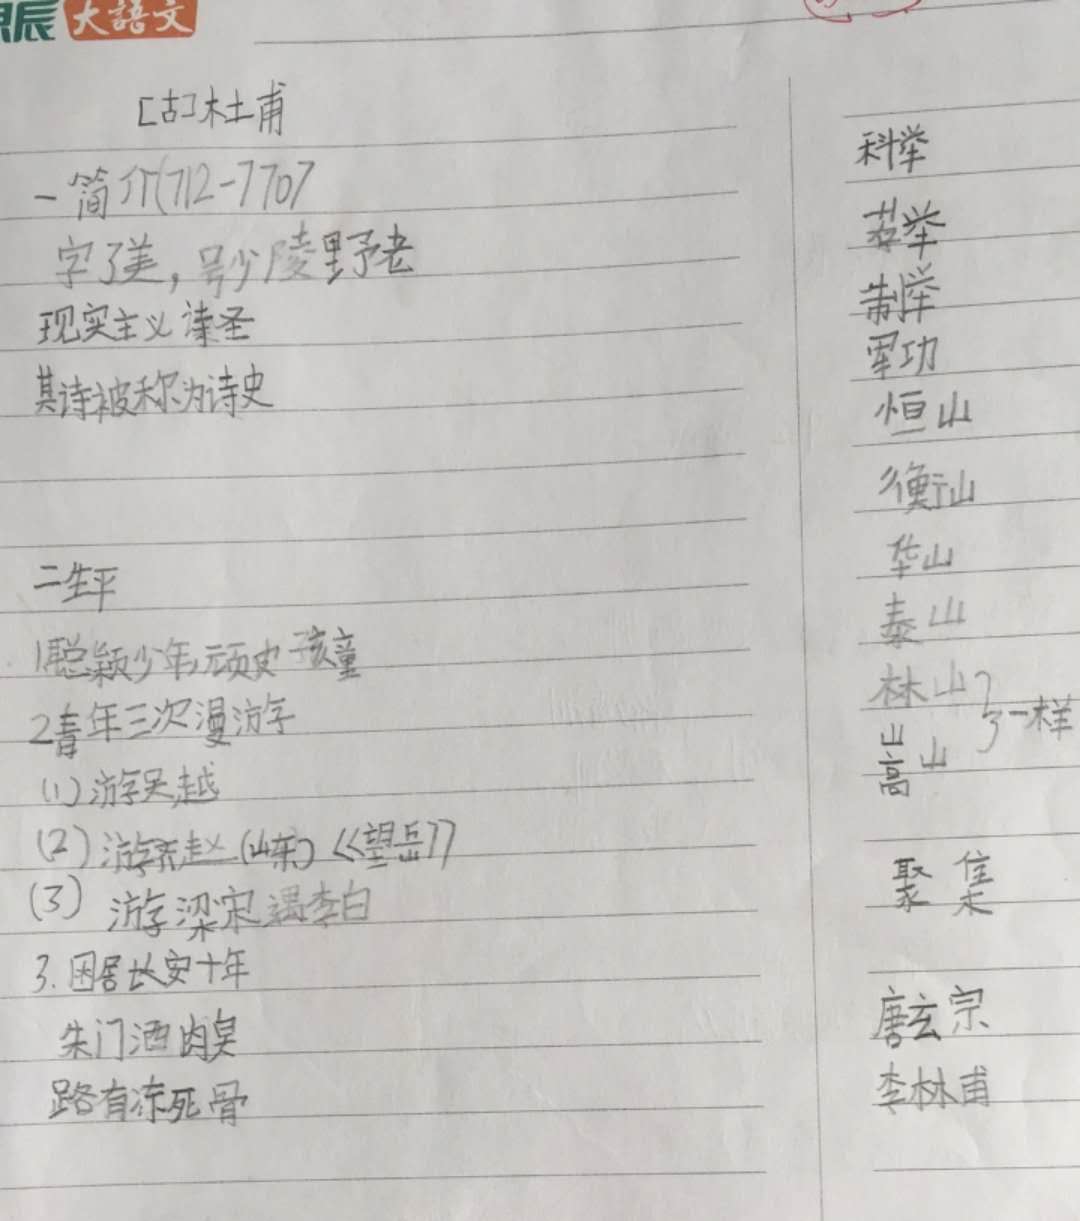 辰 大語文
[古]杜甫
一简介(712-770)
字子美，号少陵野老
现实主义 诗圣
其诗被称为诗史
二生平
1聪颖少年，顽皮孩童
2青年三次漫游学
(1)游学吴越
(2)游学齐赵(山东)《望岳》
(3)游学梁宋 遇李白
3.困居长安十年
朱门酒肉臭
路有冻死骨
科举
荐举
制举
军功
恒山
衡山
华山
泰山
林山
嵩山 一样
聚集
唐玄宗
李林甫